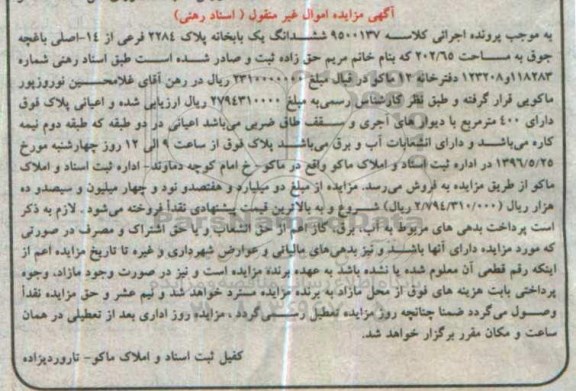 آگهی مزایده اموال غیر منقول ( اسناد رهنی)
به موجب پرونده اجرائی کلاسه ۹۵۰۰۱۳۷ ششدانگ یک بابخانه پلاک ۲۲۸۴ فرعی از ۱۴-اصلی باغچه
جوق به مساحت ۲۰۲/۶۵ که بنام خانم مریم حق زاده ثبت و صادر شده است طبق اسناد رهنی شماره
۱۱۸۲۸۳و۱۲۳۲۰۸ دفترخانه ۱۲ ماکو در قبال مبلغ ۲۳۱۰۰۰۰۰۰۰ ریال در رهن آقای غلامحسین نوروزپور
ماکویی قرار گرفته و طبق نظر کارشناس رسمی به مبلغ ۲۷۹۴۳۱۰۰۰۰ ریال ارزیابی شده و اعیانی پلاک فوق
دارای ۴۰۰ مترمربع با دیوار های آجری و سقف طاق ضربی می‌باشد اعیانی در دو طبقه که طبقه دوم نیمه
کاره می‌باشد و دارای انشعابات آب و برق می‌باشد پلاک فوق از ساعت ۹ الی ۱۲ روز چهارشنبه مورخ
۱۳۹۶/۵/۲۵ در اداره ثبت اسناد و املاک ماکو واقع در ماکو-خ امام کوچه دماوند- اداره ثبت اسناد و املاک
ماکو از طریق مزایده به فروش می‌رسد. مزایده از مبلغ دو میلیارد و هفتصدو نود و چهار میلیون و سیصدو ده
هزار ریال (۲/۷۹۴/۳۱۰/۰۰۰ ریال) شروع و به بالاترین قیمت پیشنهادی نقداً فروخته می‌شود . لازم به ذکر
است پرداخت بدهی های مربوط به آب، برق، گاز اعم از حق انشعاب و یا حق اشتراک و مصرف در صورتی
که مورد مزایده دارای آنها باشد و نیز بدهی‌های مالیاتی و عوارض شهرداری و غیره تا تاریخ مزایده اعم از
اینکه رقم قطعی آن معلوم شده یا نشده باشد به عهده برنده مزایده است و نیز در صورت وجود مازاد، وجوه
پرداختی بابت هزینه های فوق از محل مازاد به برنده مزایده مسترد خواهد شد و نیم عشر و حق مزایده نقداً
وصول می‌گردد ضمنا چنانچه روز مزایده تعطیل رسمی‌گردد ، مزایده روز اداری بعد از تعطیلی در همان
ساعت و مکان مقرر برگزار خواهد شد.
کفیل ثبت اسناد و املاک ماکو- تاروردیزاده